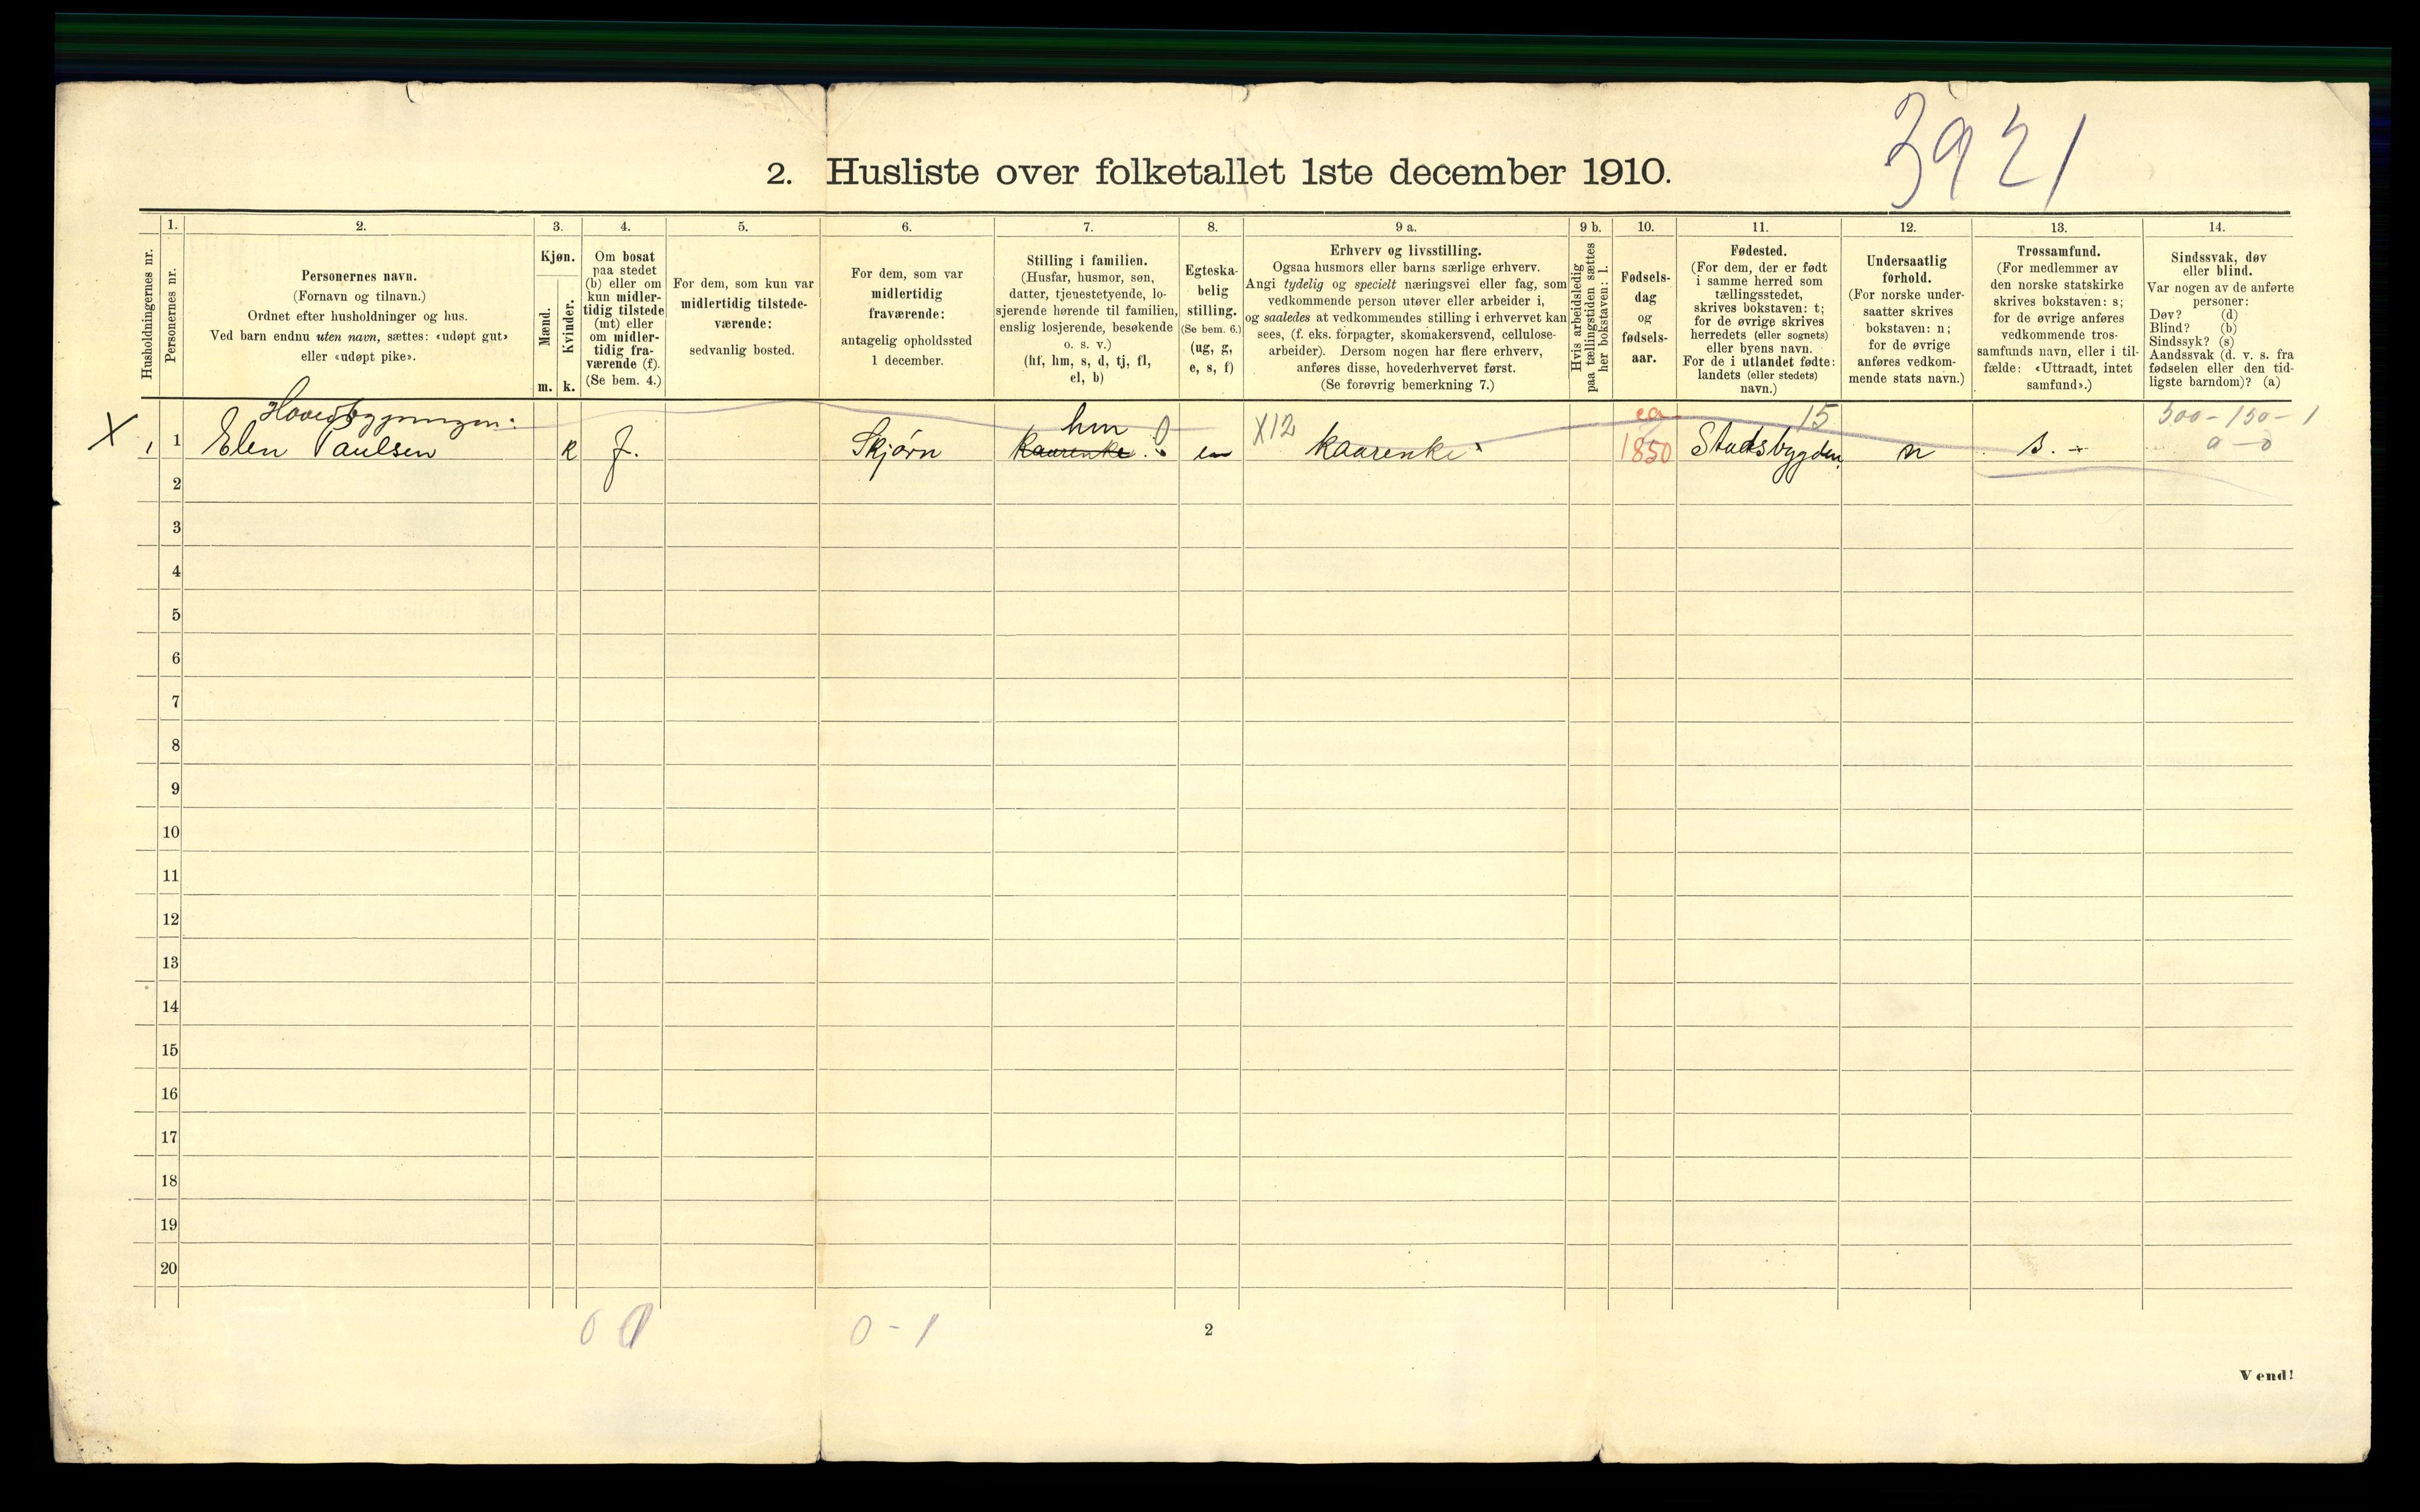 3921
2. Husliste over folketallet 1ste december 1910.
Husholdningernes nr.
1.
Personernes nr.
2.
Personernes navn.
(Fornavn og tilnavn.)
Ordnet efter husholdninger og hus.
Ved barn endnu uten navn, sættes: «udøpt gut»
eller «udøpt pike».
3.
Kjøn.
Mænd.
m.
Kvinder.
k.
4.
Om bosat
paa stedet
(b) eller om
kun midler-
tidig tilstede
(mt) eller
om midler-
tidig fra-
værende (f).
(Se bem. 4.)
5.
For dem, som kun var
midlertidig tilstede-
værende:
sedvanlig bosted.
6.
For dem, som var
midlertidig
fraværende:
antagelig opholdssted
1 december.
7.
Stilling i familien.
(Husfar, husmor, søn,
datter, tjenestetyende, lo-
sjerende hørende til familien,
enslig losjerende, besøkende
o. s. v.)
(hf, hm, s, d, tj, fl,
el, b)
8.
Egteska-
belig
stilling.
(Se bem. 6.)
(ug, g,
e, s, f)
9 a.
Erhverv og livsstilling.
Ogsaa husmors eller barns særlige erhverv.
Angi tydelig og specielt næringsvei eller fag, som
vedkommende person utøver eller arbeider i,
og saaledes at vedkommendes stilling i erhvervet kan
sees, (f. eks. forpagter, skomakersvend, cellulose-
arbeider). Dersom nogen har flere erhverv,
anføres disse, hovederhvervet først.
(Se forøvrig bemerkning 7.)
9 b.
Hvis arbeidsledig
paa tællingstiden sættes
her bokstaven: l.
10.
Fødsels-
dag
og
fødsels-
aar.
11.
Fødested.
(For dem, der er født
i samme herred som
tællingsstedet,
skrives bokstaven: t;
for de øvrige skrives
herredets (eller sognets)
eller byens navn.
For de i utlandet fødte:
landets (eller stedets)
navn.)
12.
Undersaatlig
forhold.
(For norske under-
saatter skrives
bokstaven: n;
for de øvrige
anføres vedkom-
mende stats navn.)
13.
Trossamfund.
(For medlemmer av
den norske statskirke
skrives bokstaven: s;
for de øvrige anføres
vedkommende tros-
samfunds navn, eller i til-
fælde: «Uttraadt, intet
samfund».)
14.
Sindssvak, døv
eller blind.
Var nogen av de anførte
personer:
Døv? (d)
Blind? (b)
Sindssyk? (s)
Aandssvak (d. v. s. fra
fødselen eller den tid-
ligste barndom)? (a)
Hovedbygningen:
hm
X12
ca
15
300-150-1
0-0
X 1 1 Elen Paulsen k f. Skjørn kaarenke. en kaarenke 1850 Stadsbygden n s.
2
3
4
5
6
7
8
9
10
11
12
13
14
15
16
17
18
19
20
0-1
2
Vend!